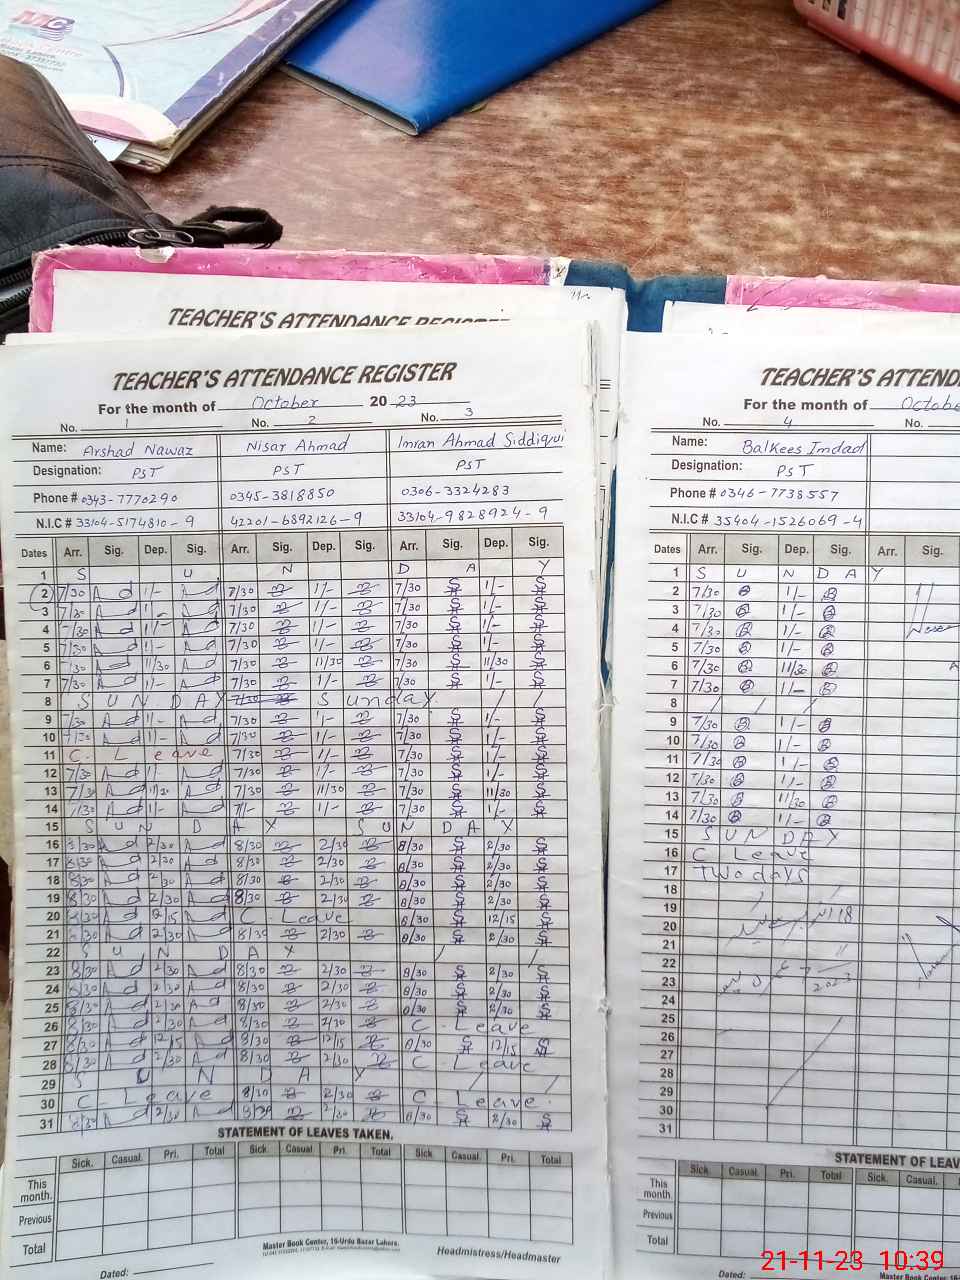 TEACHER'S ATTENDANCE REGISTER
TEACHER'S ATTENDANCE REGISTER
For the month of October 2023
No. 1 No. 2 No. 3
Name: Arshad Nawaz Nisar Ahmad Imran Ahmad Siddiqui
Designation: PST PST PST
Phone # 0343-7770290 0345-3818850 0306-3324283
N.I.C # 33104-5174810-9 42201-6892126-9 33104-9828924-9
Dates Arr. Sig. Dep. Sig. Arr. Sig. Dep. Sig. Arr. Sig. Dep. Sig.
1 S U N D A Y
2 7/30 1/- 7/30 1/- 7/30 1/-
3 7/30 1/- 7/30 1/- 7/30 1/-
4 7/30 1/- 7/30 1/- 7/30 1/-
5 7/30 1/- 7/30 1/- 7/30 1/-
6 7/30 11/30 7/30 11/30 7/30 11/30
7 7/30 1/- 7/30 1/- 7/30 1/-
8 S U N D A Y 7/30 Sunday
9 7/30 1/- 7/30 1/- 7/30 1/-
10 7/30 1/- 7/30 1/- 7/30 1/-
11 C. Leave 7/30 1/- 7/30 1/-
12 7/30 1/- 7/30 1/- 7/30 1/-
13 7/30 11/30 7/30 11/30 7/30 11/30
14 7/30 1/- 7/- 1/- 7/30 1/-
15 S U N D A Y S U N D A Y
16 8/30 2/30 8/30 2/30 8/30 2/30
17 8/30 2/30 8/30 2/30 8/30 2/30
18 8/30 2/30 8/30 2/30 8/30 2/30
19 8/30 2/30 8/30 2/30 8/30 2/30
20 8/30 12/15 C. Leave 8/30 12/15
21 8/30 2/30 8/30 2/30 8/30 2/30
22 S U N D A Y
23 8/30 2/30 8/30 2/30 8/30 2/30
24 8/30 2/30 8/30 2/30 8/30 2/30
25 8/30 2/30 8/30 2/30 8/30 2/30
26 8/30 2/30 8/30 2/30 C. Leave
27 8/30 12/15 8/30 12/15 8/30 12/15
28 8/30 2/30 8/30 2/30 C. Leave
29 S U N D A Y
30 C. Leave 8/30 2/30 C. Leave.
31 8/30 2/30 8/30 2/30 8/30 2/30
STATEMENT OF LEAVES TAKEN.
Sick. Casual. Pri. Total Sick. Casual. Pri. Total Sick. Casual. Pri. Total
This month.
Previous
Total
Master Book Center, 16-Urdu Bazar Lahore.
Headmistress/Headmaster
Dated:
TEACHER'S ATTEND
For the month of Octobe
No. 4 No.
Name: Balkees Imdad
Designation: PST
Phone # 0346-7738557
N.I.C # 35404-1526069-4
Dates Arr. Sig. Dep. Sig. Arr. Sig.
1 S U N D A Y
2 7/30 1/-
3 7/30 1/-
4 7/30 1/-
5 7/30 1/-
6 7/30 11/30
7 7/30 1/-
8
9 7/30 1/-
10 7/30 1/-
11 7/30 1/-
12 7/30 1/-
13 7/30 11/30
14 7/30 1/-
15 S U N D A Y
16 C Leave
17 Two days
18
19
20
21
22
23
24
25
26
27
28
29
30
31
STATEMENT OF LEAV
Sick Casual. Pri. Total Sick. Casual.
This month.
Previous
Total
Dated:
Master Book Center, 16
21-11-23 10:39